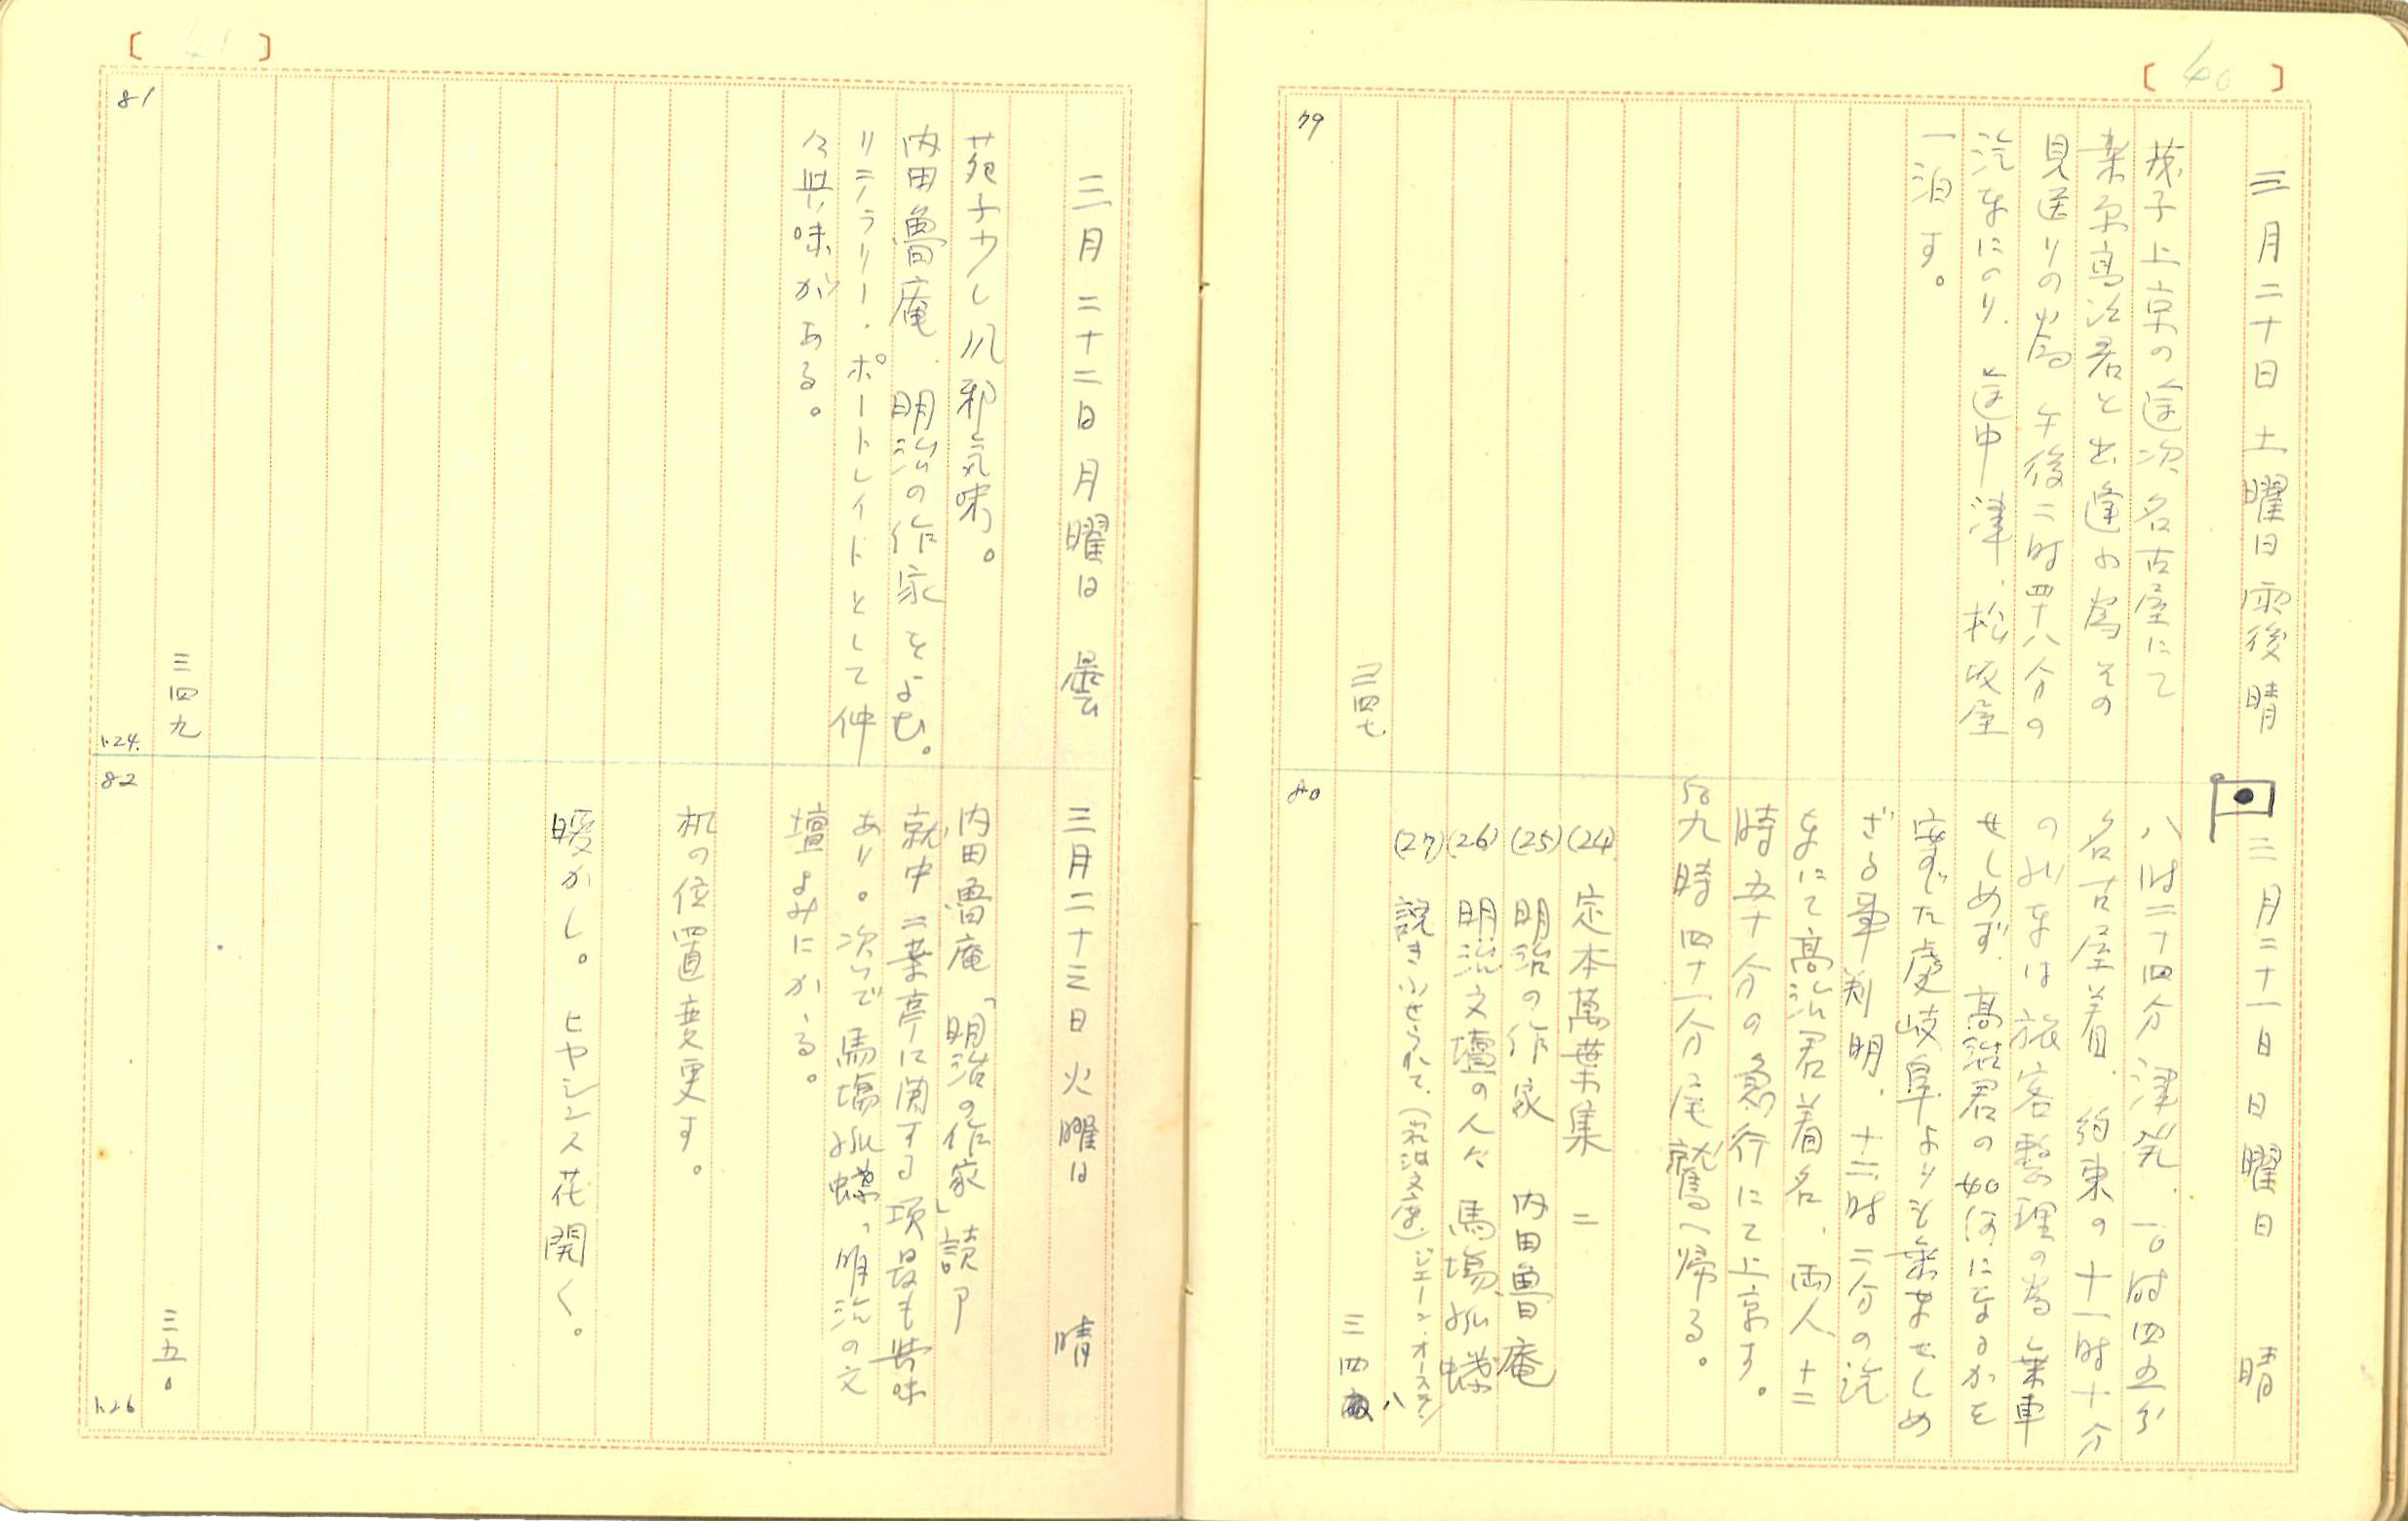 [40]
三月二十日 土曜日 雨後晴
茂子上京の途次名古屋にて
桑原高治君と出逢の為その
見送りの為 午後二時四十八分の
汽車にのり、途中津、松坂屋
一泊す。
三四七
79
三月二十一日 日曜日 晴
八時二十四分津発、一〇時四五分
名古屋着、約束の十一時十分
の列車は旅客整理の為乗車
せしめず、高治君の如何になるかを
案ずた處岐阜よりも乗車せしめ
ざる事判明、十二時二分の汽
車にて高治君着名、両人十二
時五十分の急行にて上京す。
九時四十一分尾鷲へ帰る。
(24) 定本萬葉集 二
(25) 明治の作家 内田魯庵
(26) 明治文壇の人々 馬場孤蝶
(27) 説きふせられて、(岩波文庫) ジエーン・オーステン
三四八
80
[41]
三月二十二日 月曜日 曇
苑子少し風邪気味。
内田魯庵、明治の作家をよむ。
リテラリー・ポートレイトとして仲
々興味がある。
三四九
81
1.24.
三月二十三日 火曜日 晴
内田魯庵「明治の作家」読了
就中二葉亭に関する項最も興味
あり。次いで馬場孤蝶、明治の文
壇よみにかゝる。
机の位置変更す。
暖かし。ヒヤシンス花開く。
三五〇
82
1.26